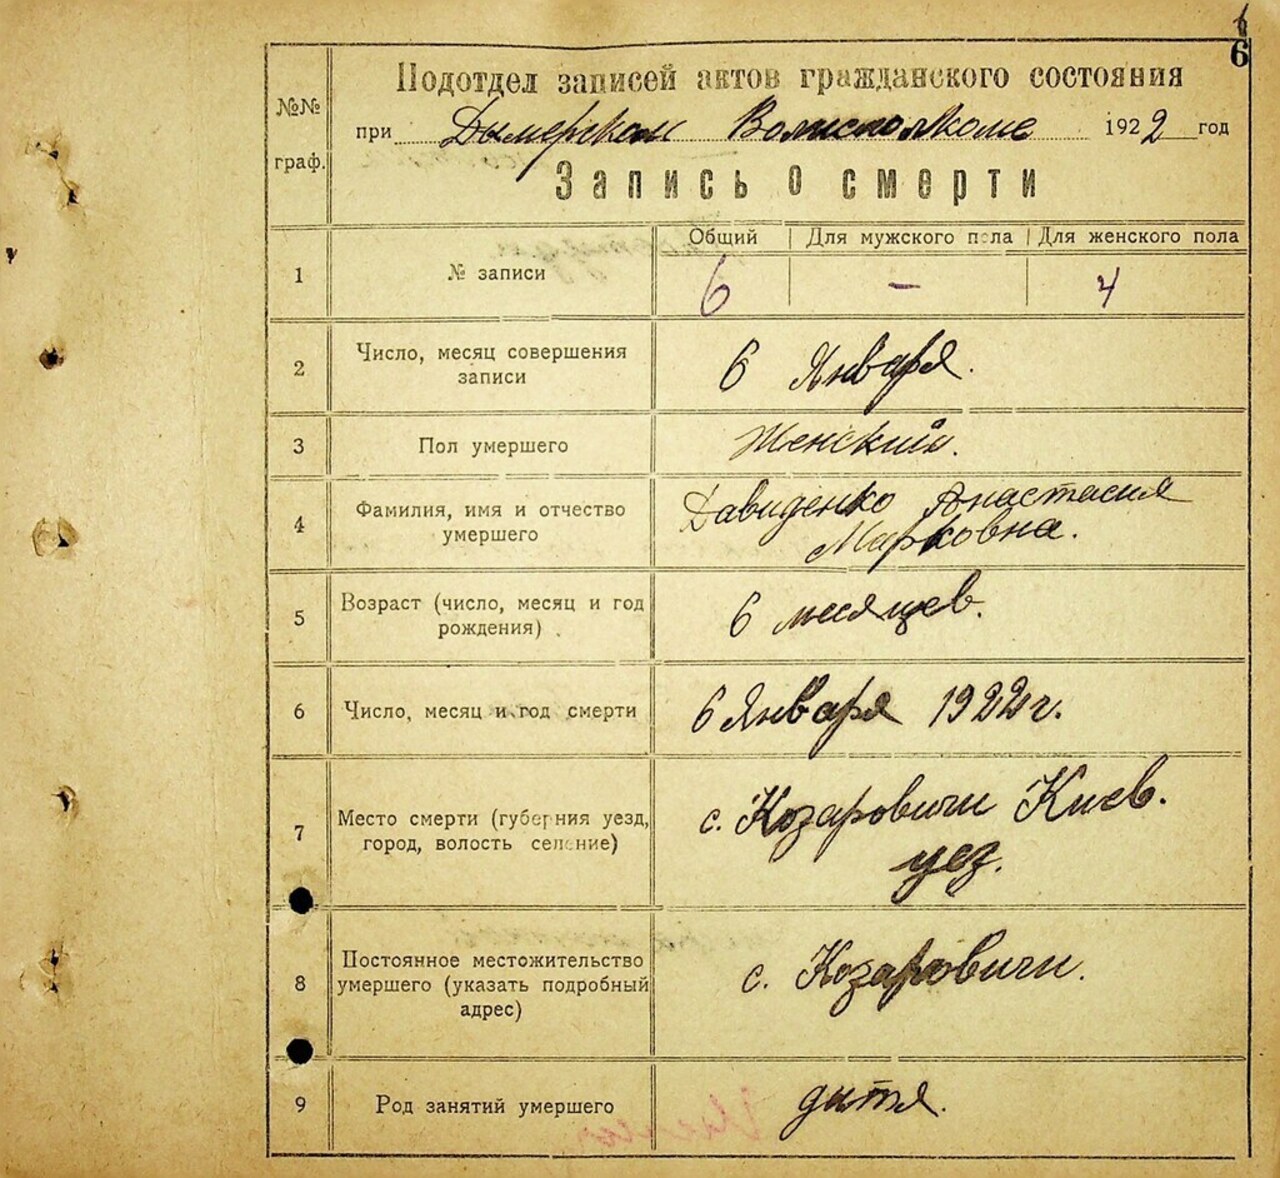 6
Подотдел записей актов гражданского состояния
№№
граф.
при Дымерском Волисполкоме 1922 год
Запись о смерти
Общий Для мужского пола Для женского пола
1 № записи 6 — 4
2 Число, месяц совершения
записи
6 Января.
3 Пол умершего Женский.
4 Фамилия, имя и отчество
умершего
Давиденко Анастасия
Марковна.
5 Возраст (число, месяц и год
рождения)
6 месяцев.
6 Число, месяц и год смерти 6 Января 1922 г.
7 Место смерти (губерния уезд,
город, волость селение)
с. Козаровичи Киев.
уез.
8 Постоянное местожительство
умершего (указать подробный
адрес)
с. Козаровичи.
9 Род занятий умершего дитя.